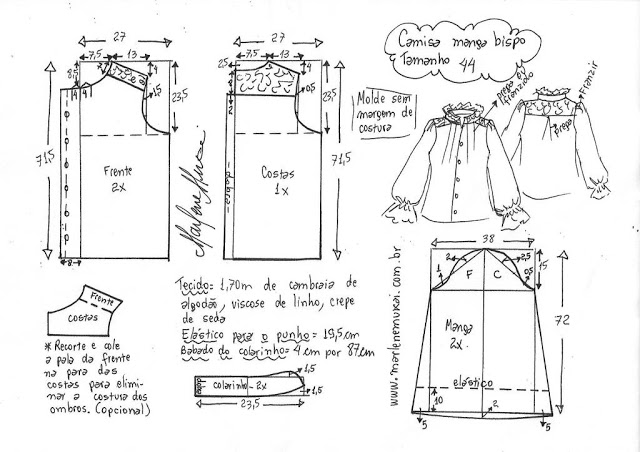 27
7,5
13
8,5
4
4
4
1,5
23,5
71,5
Frente
2x
8
Marlene Mukai
27
7,5
13
2,5
4
2
0,5
23,5
71,5
dobra
Costas
1x
Camisa manga bispo
Tamanho 44
Molde sem
margem de
costura
prega ou
franzido
Franzir
prega
38
2
2,5
1
0,5
F
C
15
72
Manga
2x
elástico
10
2
5
5
www.marlenemukai.com.br
Tecido = 1,70m de cambraia de
algodão, viscose de linho, crepe
de seda
Elástico para o punho = 19,5cm
Babado do colarinho = 4cm por 87cm
colarinho - 2x
1,5
1,5
23,5
Frente
costas
* Recorte e cole
a pala da frente
na para das
costas para elimi-
nar a costura dos
ombros. (opcional)